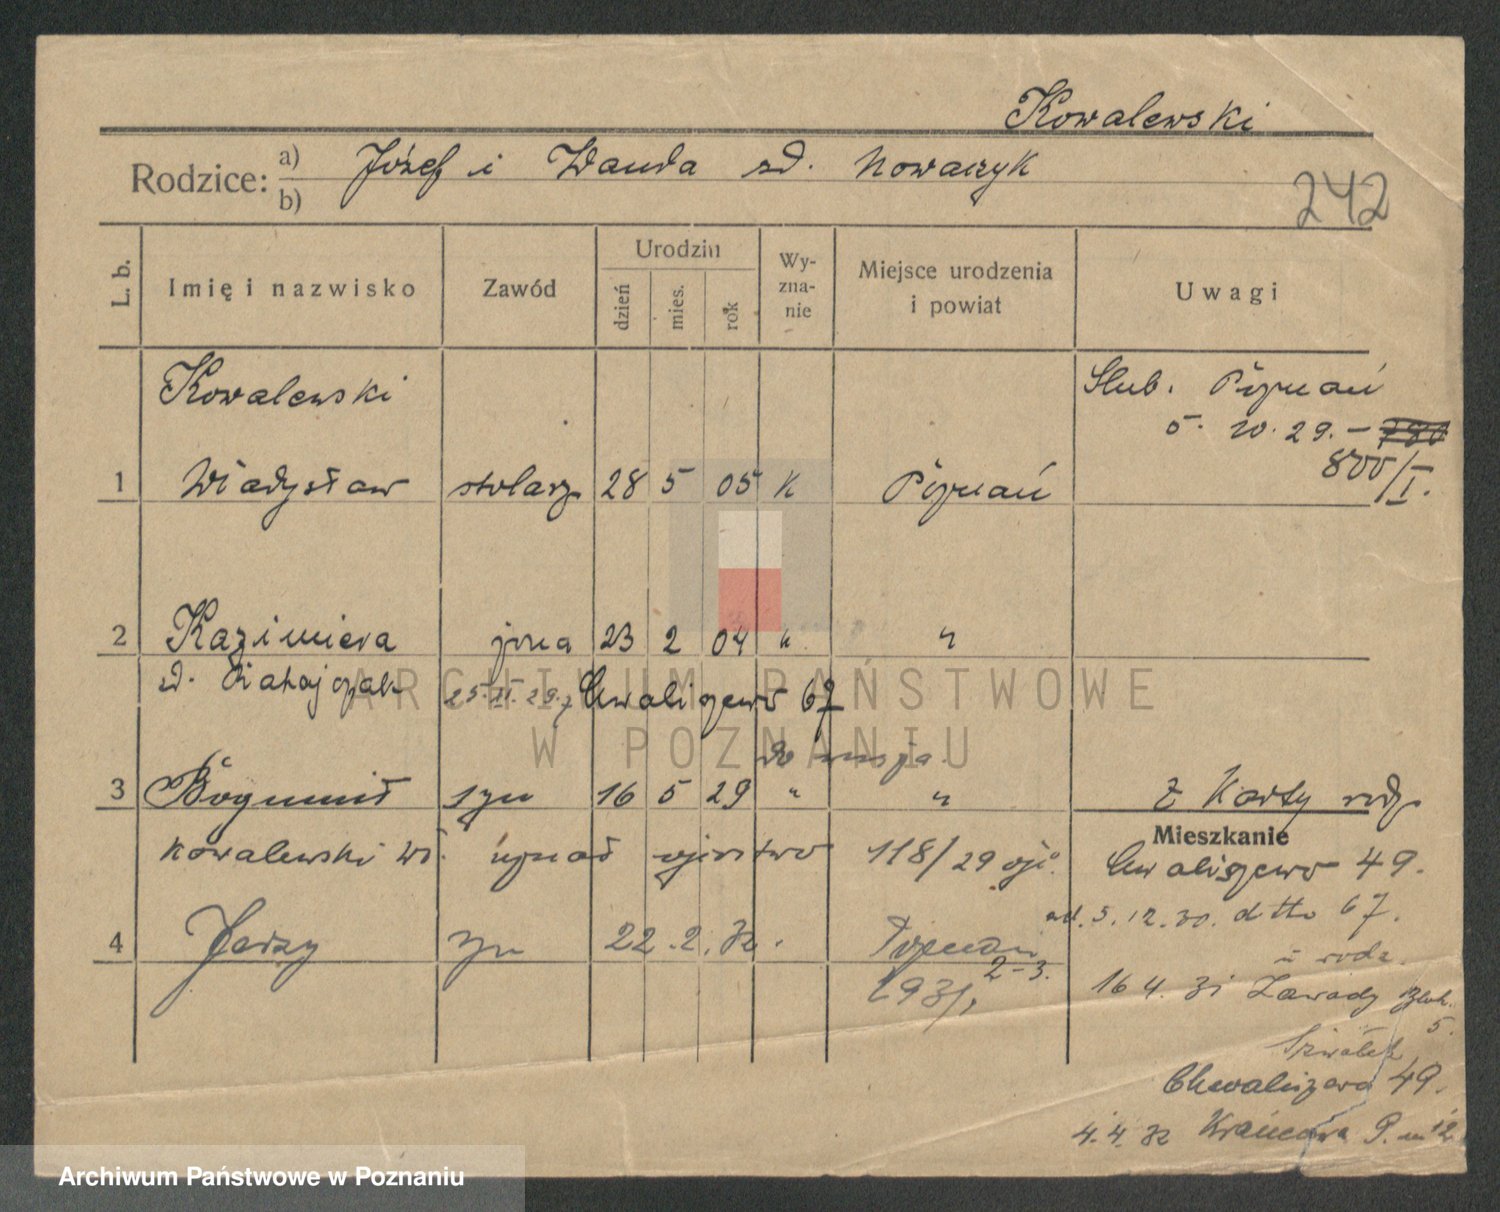 Kowalewski
Rodzice: a) Józef i Wanda zd. Nowaczyk
b)
242
L. b. Imię i nazwisko Zawód Urodzin dzień mies. rok Wyznanie Miejsce urodzenia i powiat Uwagi
Kowalewski Ślub. Poznań
5. 10. 29. –
800/I.
1 Władysław stolarz 28 5 05 K Poznań
2 Kazimiera żona 23 2 04 " "
zd. 25. 29. Chwaliszewo 67
ARCHIWUM PAŃSTWOWE
W POZNANIU
3 Bogumił syn 16 5 29 " " z Karty rodz.
Mieszkanie
Kowalewski Wł. uznał ojcostwo 118/29 Chwaliszewo 49.
od. 5. 12. 30. dtto 67.
4 Jerzy syn 22. 2. 32. Poznań
u rodz.
2-3.
1931,
16 4. 31 Zawady Blok.
5.
Chwaliszewo 49.
4. 4. 32 Krańcowa 12
Archiwum Państwowe w Poznaniu